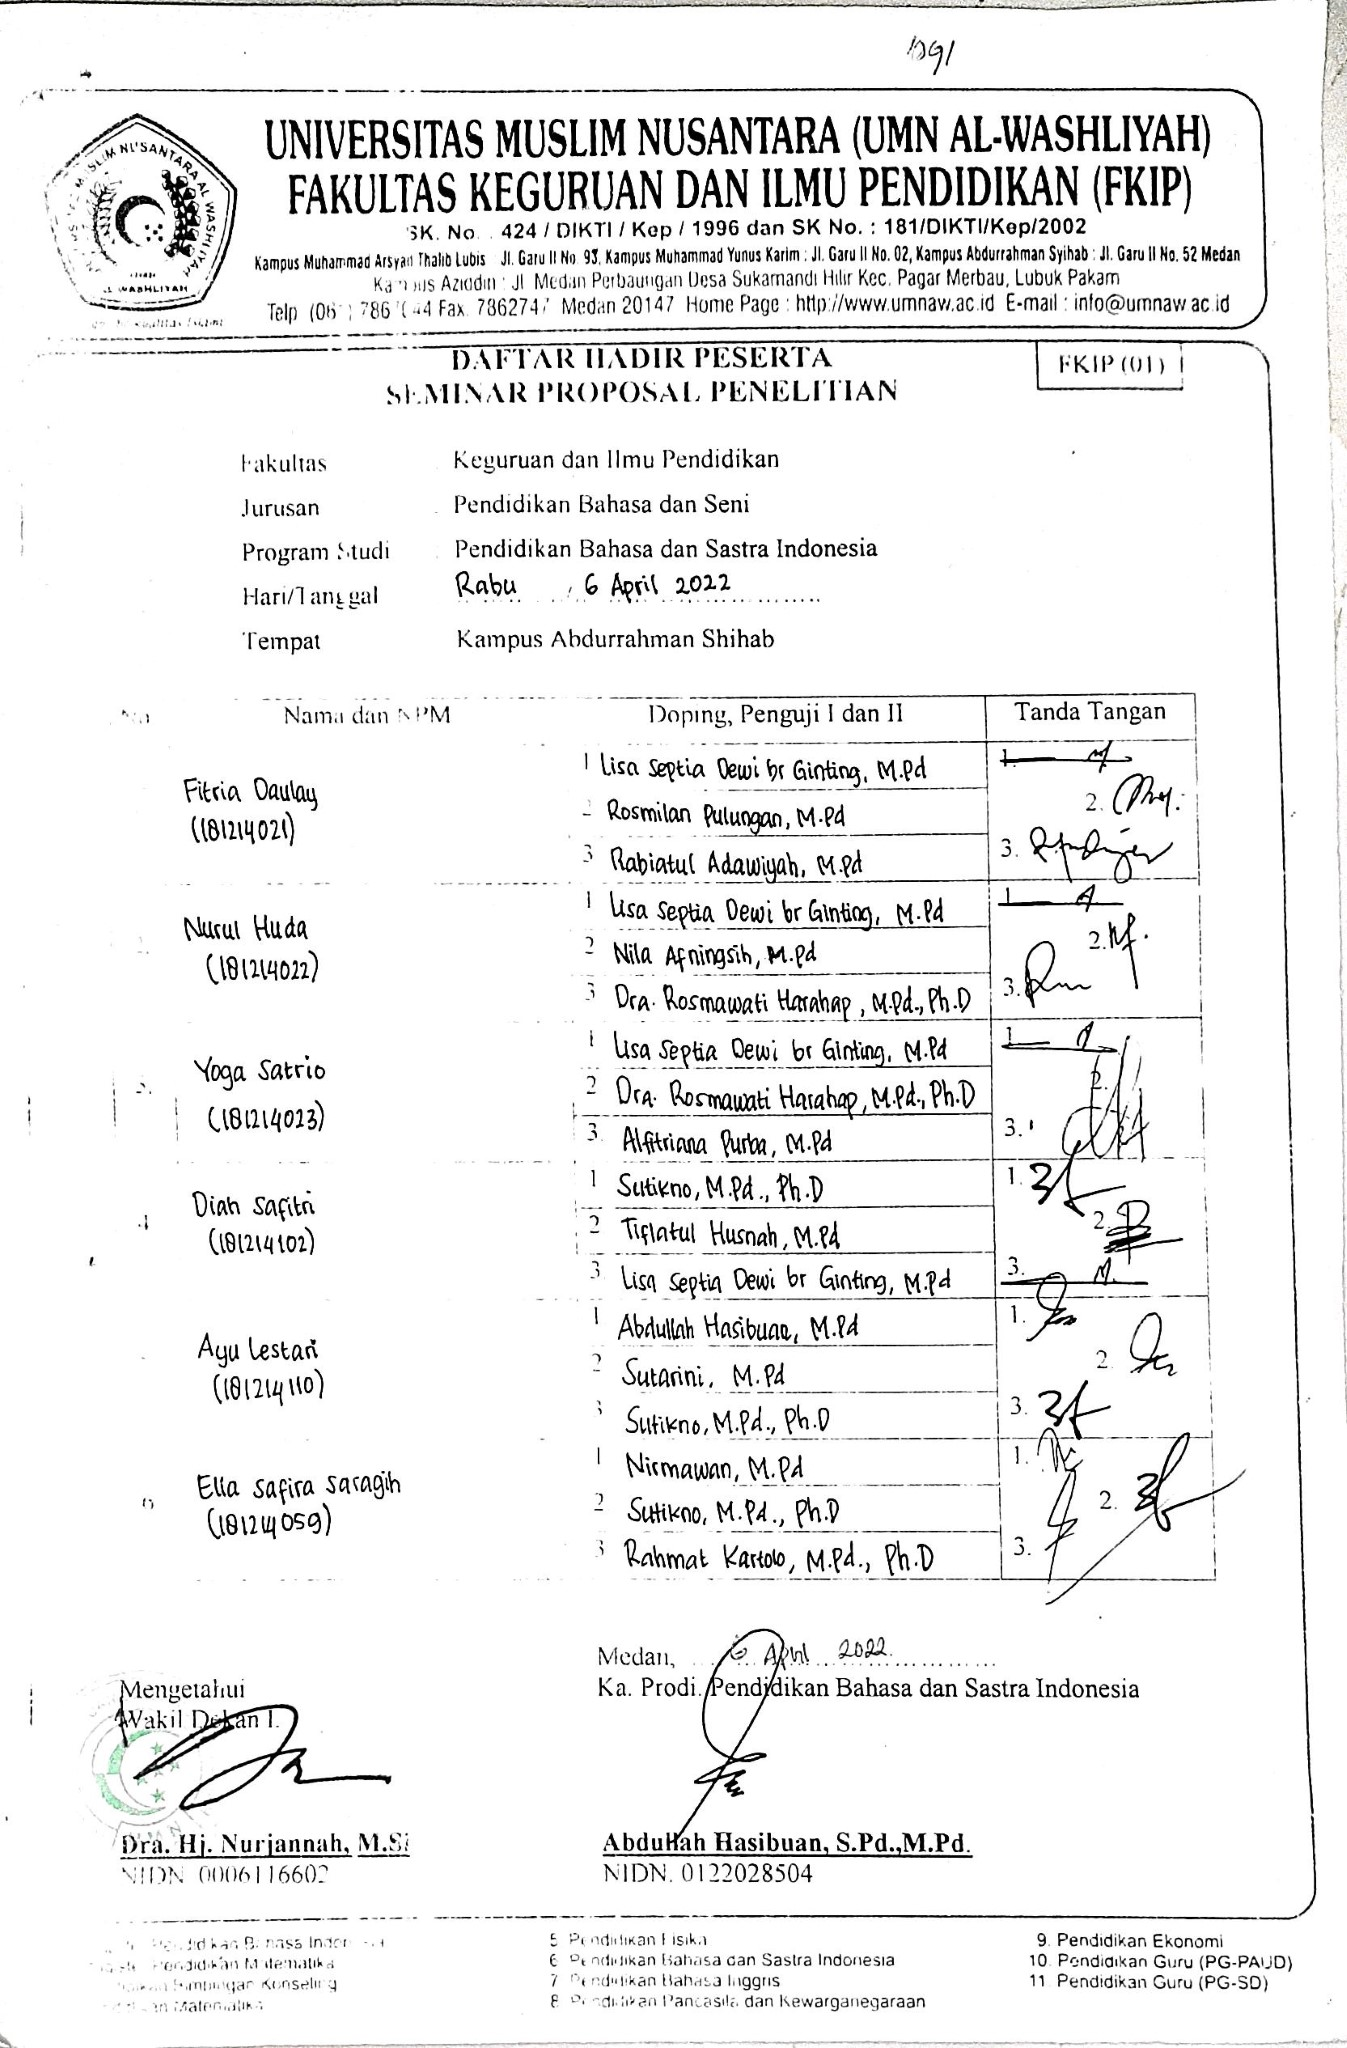 UNIVERSITAS MUSLIM NUSANTARA (UMN AL-WASHLIYAH)
FAKULTAS KEGURUAN DAN ILMU PENDIDIKAN (FKIP)
SK. No. : 424 / DIKTI / Kep / 1996 dan SK No. : 181/DIKTI/Kep/2002
Kampus Muhammad Arsyad Thalib Lubis : Jl. Garu II No. 93, Kampus Muhammad Yunus Karim : Jl. Garu II No. 02, Kampus Abdurrahman Syihab : Jl. Garu II No. 52 Medan
Kampus Aziddin : Jl Medan Perbaungan Desa Sukamandi Hilir Kec. Pagar Merbau, Lubuk Pakam
Telp Fax. 7862747 Medan 20147 Home Page : http://www.umnaw.ac.id E-mail : info@umnaw.ac.id
DAFTAR HADIR PESERTA
SEMINAR PROPOSAL PENELITIAN
FKIP (01)
Fakultas Keguruan dan Ilmu Pendidikan
Jurusan Pendidikan Bahasa dan Seni
Program Studi Pendidikan Bahasa dan Sastra Indonesia
Hari/Tanggal Rabu , 6 April 2022
Tempat Kampus Abdurrahman Shihab
Nama dan NPM Doping, Penguji I dan II Tanda Tangan
Fitria Daulay
(181214021)
1 Lisa Septia Dewi br Ginting, M.Pd 1.
2 Rosmilan Pulungan, M.Pd 2.
3 Rabiatul Adawiyah, M.Pd 3.
Nurul Huda
(181214022)
1 Lisa Septia Dewi br Ginting, M.Pd 1
2 Nila Afningsih, M.Pd 2.
3 Dra. Rosmawati Harahap, M.Pd., Ph.D 3.
3. Yoga Satrio
(181214023)
1 Lisa Septia Dewi br Ginting, M.Pd 1
2 Dra. Rosmawati Harahap, M.Pd., Ph.D 2.
3. Alfitriana Purba, M.Pd 3.
4 Diah Safitri
(181214102)
1 Sutikno, M.Pd., Ph.D 1.
2 Tiflatul Husnah, M.Pd 2.
3. Lisa Septia Dewi br Ginting, M.Pd 3.
Ayu Lestari
(181214110)
1 Abdullah Hasibuan, M.Pd 1.
2 Sutarini, M.Pd 2.
3 Sutikno, M.Pd., Ph.D 3.
6 Ella Safira Saragih
(181214059)
1 Nirmawan, M.Pd 1.
2 Sutikno, M.Pd., Ph.D 2.
3 Rahmat Kartolo, M.Pd., Ph.D 3.
Medan, 6 April 2022
Ka. Prodi. Pendidikan Bahasa dan Sastra Indonesia
Mengetahui
Wakil Dekan I.
Dra. Hj. Nurjannah, M.Si
NIDN 0006116602
Abdullah Hasibuan, S.Pd.,M.Pd.
NIDN. 0122028504
Pendidikan Bahasa
Pendidikan Matematika
Bimbingan Konseling
Matematika
5 Pendidikan Fisika
6 Pendidikan Bahasa dan Sastra Indonesia
7 Pendidikan Bahasa Inggris
8 Pendidikan Pancasila dan Kewarganegaraan
9. Pendidikan Ekonomi
10. Pendidikan Guru (PG-PAUD)
11 Pendidikan Guru (PG-SD)